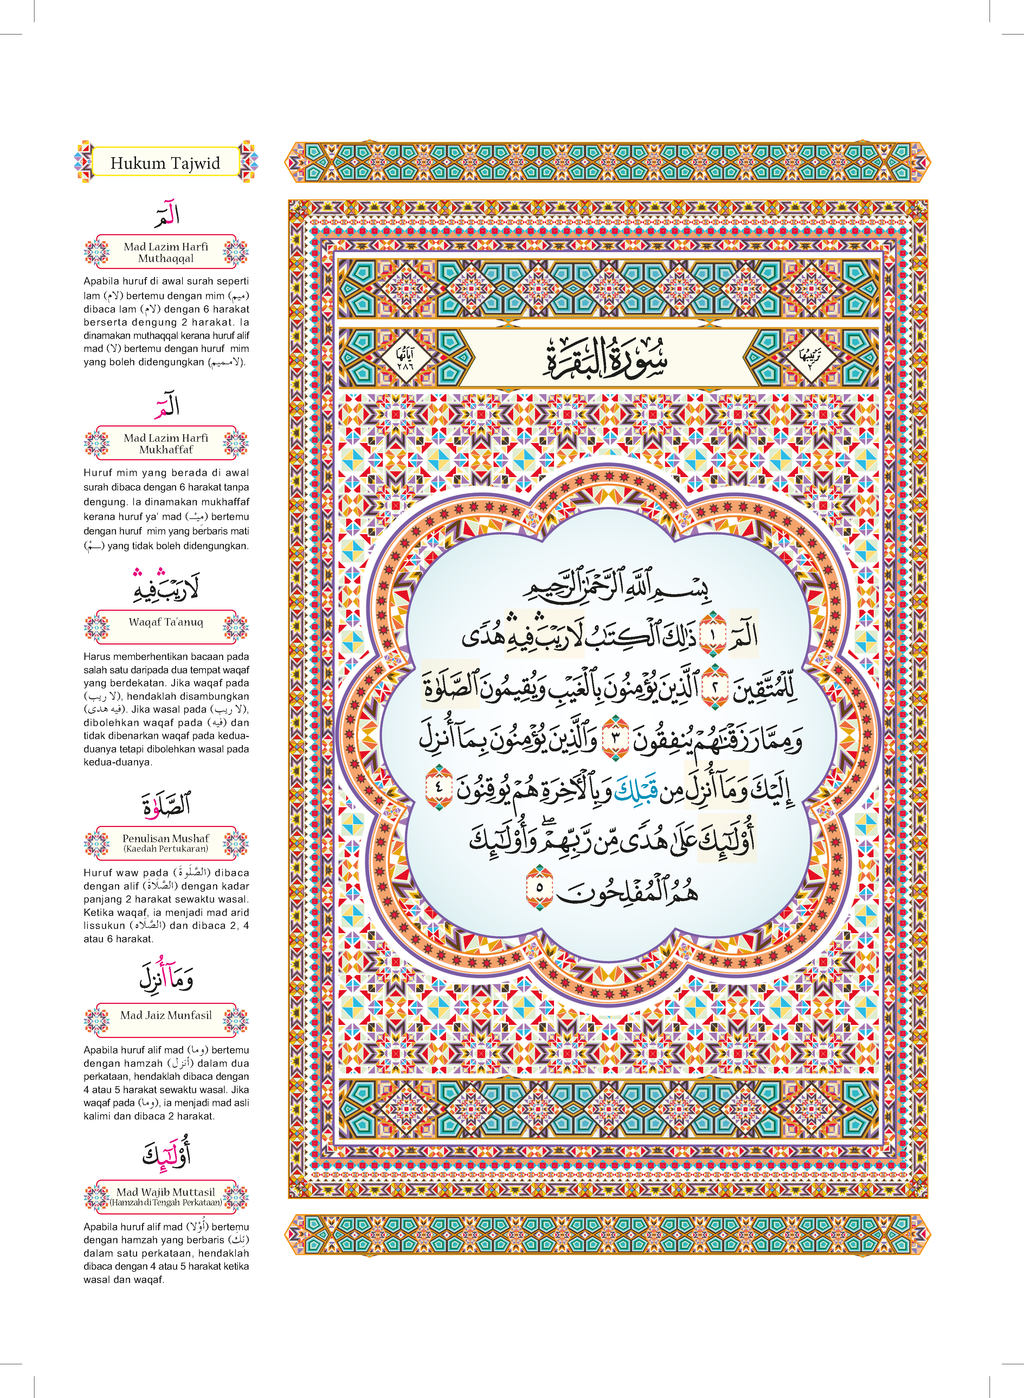 Hukum Tajwid
الٓمٓ
Mad Lazim Harfi
Muthaqqal
Apabila huruf di awal surah seperti
lam (لام) bertemu dengan mim (ميم)
dibaca lam (لام) dengan 6 harakat
berserta dengung 2 harakat. Ia
dinamakan muthaqqal kerana huruf alif
mad (لا) bertemu dengan huruf mim
yang boleh didengungkan (لامميم).
الٓمٓ
Mad Lazim Harfi
Mukhaffaf
Huruf mim yang berada di awal
surah dibaca dengan 6 harakat tanpa
dengung. Ia dinamakan mukhaffaf
kerana huruf ya' mad (ميـ) bertemu
dengan huruf mim yang berbaris mati
(ـمْ) yang tidak boleh didengungkan.
لَا رَيْبَ ۛ فِيهِ ۛ
Waqaf Ta'anuq
Harus memberhentikan bacaan pada
salah satu daripada dua tempat waqaf
yang berdekatan. Jika waqaf pada
(لا ريب), hendaklah disambungkan
(فيه هدى). Jika wasal pada (لا ريب),
dibolehkan waqaf pada (فيه) dan
tidak dibenarkan waqaf pada kedua-
duanya tetapi dibolehkan wasal pada
kedua-duanya.
ٱلصَّلَوٰةَ
Penulisan Mushaf
(Kaedah Pertukaran)
Huruf waw pada (الصَّلَوةَ) dibaca
dengan alif (الصَّلَاةَ) dengan kadar
panjang 2 harakat sewaktu wasal.
Ketika waqaf, ia menjadi mad arid
lissukun (الصَّلَاه) dan dibaca 2, 4
atau 6 harakat.
وَمَآ أُنزِلَ
Mad Jaiz Munfasil
Apabila huruf alif mad (وما) bertemu
dengan hamzah (أنزل) dalam dua
perkataan, hendaklah dibaca dengan
4 atau 5 harakat sewaktu wasal. Jika
waqaf pada (وما), ia menjadi mad asli
kalimi dan dibaca 2 harakat.
أُوْلَـٰٓئِكَ
Mad Wajib Muttasil
(Hamzah di Tengah Perkataan)
Apabila huruf alif mad (أُوْلَا) bertemu
dengan hamzah yang berbaris (ئِكَ)
dalam satu perkataan, hendaklah
dibaca dengan 4 atau 5 harakat ketika
wasal dan waqaf.
ترتيبها ٢
سُورَةُ الْبَقَرَةِ
آياتها ٢٨٦
بِسْمِ ٱللَّهِ ٱلرَّحْمَـٰنِ ٱلرَّحِيمِ
الٓمٓ ١ ذَٰلِكَ ٱلْكِتَـٰبُ لَا رَيْبَ ۛ فِيهِ ۛ هُدًى
لِّلْمُتَّقِينَ ٢ ٱلَّذِينَ يُؤْمِنُونَ بِٱلْغَيْبِ وَيُقِيمُونَ ٱلصَّلَوٰةَ
وَمِمَّا رَزَقْنَـٰهُمْ يُنفِقُونَ ٣ وَٱلَّذِينَ يُؤْمِنُونَ بِمَآ أُنزِلَ
إِلَيْكَ وَمَآ أُنزِلَ مِن قَبْلِكَ وَبِٱلْـَٔاخِرَةِ هُمْ يُوقِنُونَ ٤
أُوْلَـٰٓئِكَ عَلَىٰ هُدًى مِّن رَّبِّهِمْ ۖ وَأُوْلَـٰٓئِكَ
هُمُ ٱلْمُفْلِحُونَ ٥